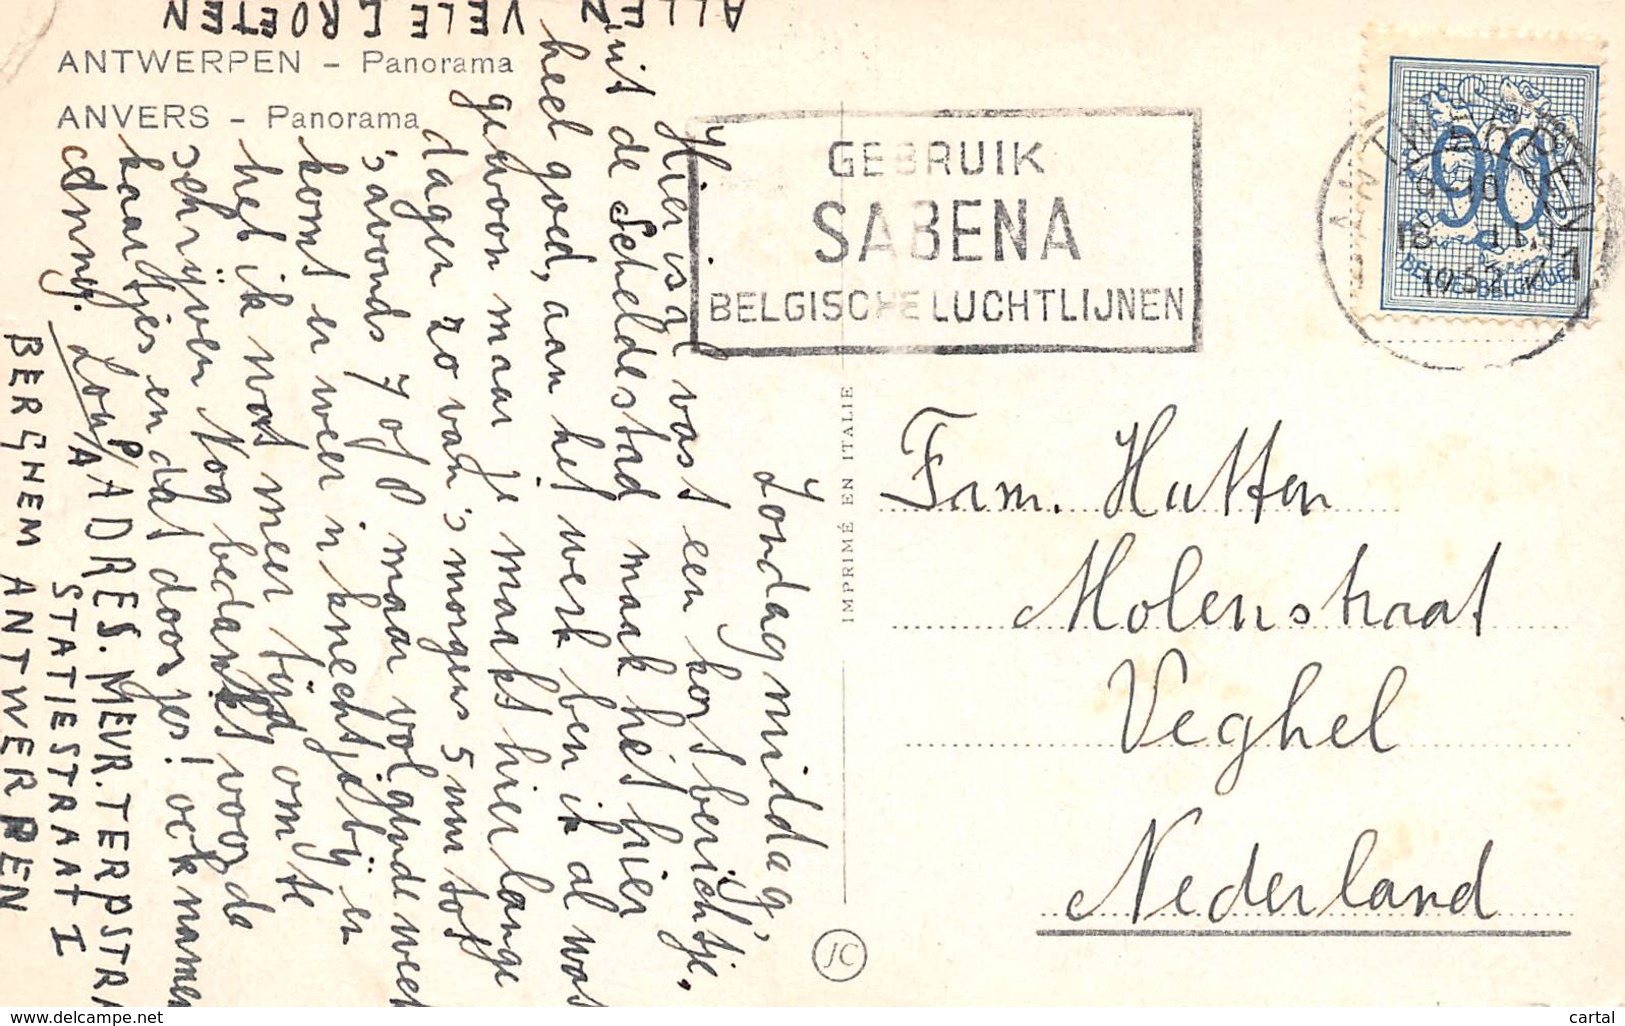 ALLEN VELE GROETEN
ANTWERPEN – Panorama
ANVERS – Panorama
GEBRUIK
SABENA
BELGISCHE LUCHTLIJNEN
ANTWERPEN
18 11
1952
90
BELGIE-BELGIQUE
Zondagmiddag,
Hier is a vast een kort berichtje,
uit de Scheldestad maak het hier
heel goed, aan het werk ben ik al wat
gewoon maar je maakt hier lange
dagen zo van 's morgens 5 uur tot
's avonds 7 of 8 maar volgende week
komt er weer 'n knechtje bij en
heb ik wat meer tijd om te
schrijven Nog bedankt voor de
kaartjes en dat doosjes! ook namens
Anny.
PADRES. MEVR. TERPSTRA
STATIESTRAAT I
BERCHEM ANTWERPEN
IMPRIMÉ EN ITALIE
Fam. Hutten
Molenstraat
Veghel
Nederland
www.delcampe.net
cartal